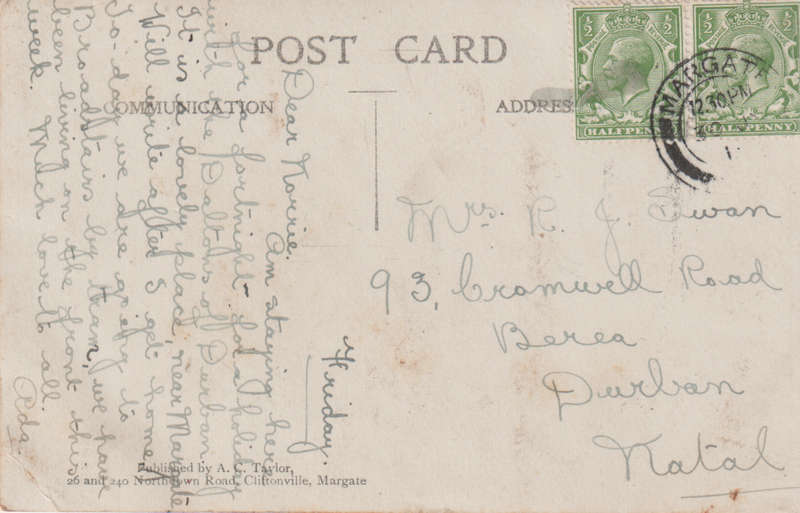 POST CARD
COMMUNICATION
ADDRESS
½ ½
½ ½
HALFPENNY
HALFPENNY
MARGATE
12.30 PM
Friday.
Dear Norrie.
Am staying here
for a fortnight - for a holiday
with the Daltons of Durban
It is a lovely place, near Margate
Will write after I get home
To-day we are going to
Broadstairs by tram, we have
been living on the front this
week. Much love to all.
Ada.
Mrs. R. J. Swan
93, Cromwell Road
Berea
Durban
Natal
Published by A. C. Taylor,
26 and 240 Northdown Road, Cliftonville, Margate